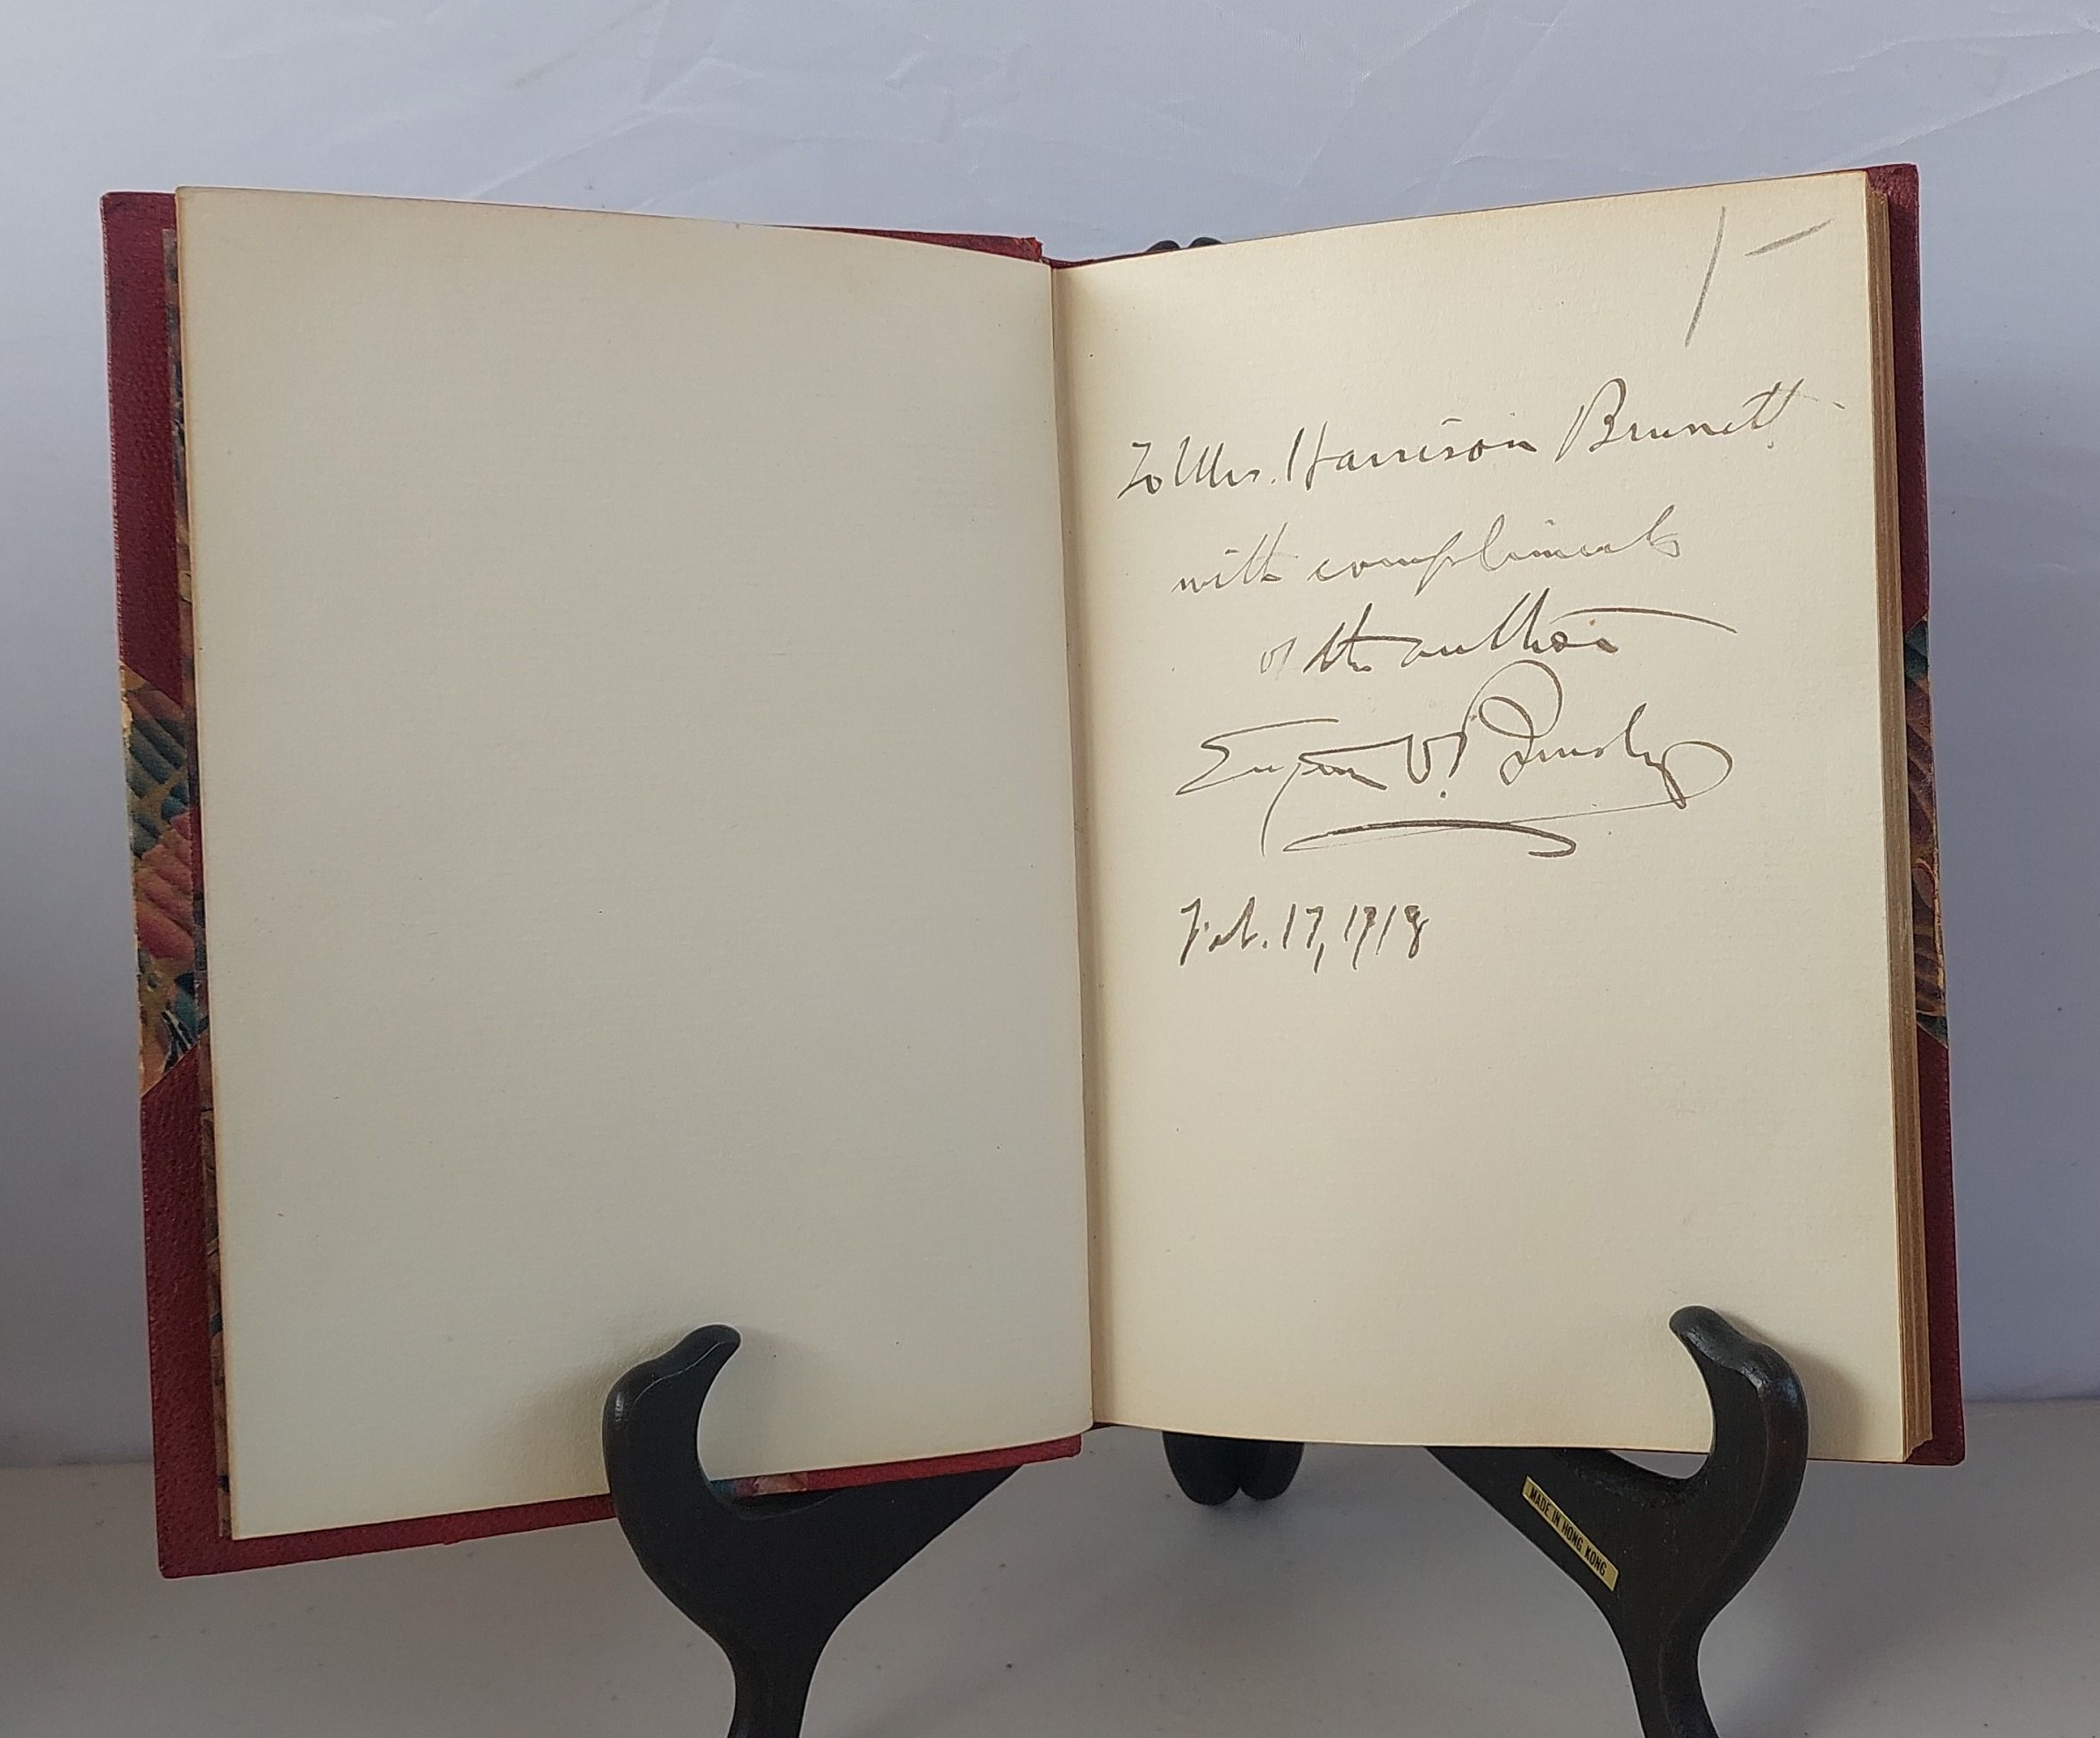 1-
To Mrs. Harrison Brunett
with compliments
of the author
Eugene V. Brewster
Feb. 17, 1918
MADE IN HONG KONG